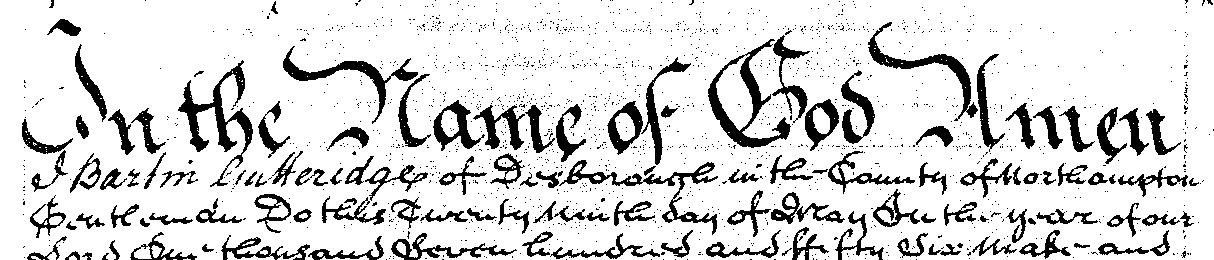 In the Name of God Amen
I Bartin Gutteridge of Desborough in the County of Northampton
Gentleman Do this Twenty Ninth day of May In the year of our
Lord One thousand Seven hundred and ffifty Six Make and